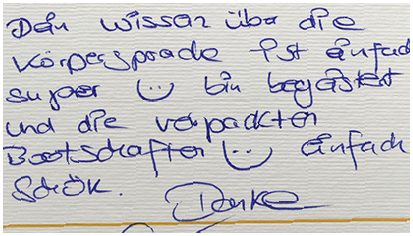 Dein wissen über die
Körpersprache ist einfach
super ☺ bin begeistert
und die verpackten
Bootschaften ☺ einfach
schök.
Danke